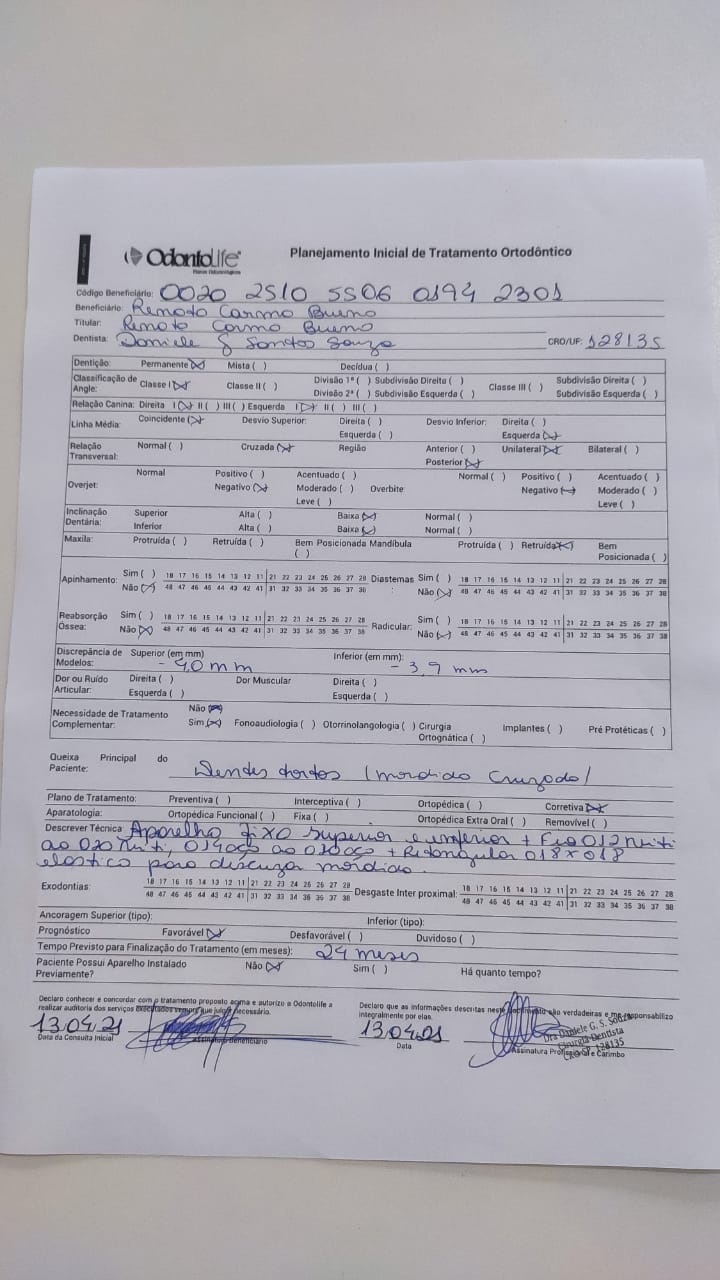 OdontoLife
Planejamento Inicial de Tratamento Ortodôntico
Código Beneficiário: 0020 2510 5506 0194 2301
Beneficiário: Renato Carmo Bueno
Titular: Renato Carmo Bueno
Dentista: Daniele G Santos Souza CRO/UF: 128135
Dentição: Permanente (X) Mista ( ) Decídua ( )
Classificação de Angle: Classe I (X) Classe II ( ) Divisão 1ª ( ) Subdivisão Direita ( ) Classe III ( ) Subdivisão Direita ( )
Divisão 2ª ( ) Subdivisão Esquerda ( ) Subdivisão Esquerda ( )
Relação Canina: Direita I (X) II ( ) III ( ) Esquerda I (X) II ( ) III ( )
Linha Média: Coincidente (X) Desvio Superior: Direita ( ) Desvio Inferior: Direita ( )
Esquerda ( ) Esquerda (X)
Relação Transversal: Normal ( ) Cruzada (X) Região Anterior ( ) Unilateral (X) Bilateral ( )
Posterior (X)
Overjet: Normal Positivo ( ) Acentuado ( ) Normal ( ) Positivo ( ) Acentuado ( )
Negativo (X) Moderado ( ) Overbite Negativo (X) Moderado ( )
Leve ( ) Leve ( )
Inclinação Dentária: Superior Alta ( ) Baixa (X) Normal ( )
Inferior Alta ( ) Baixa (X) Normal ( )
Maxila: Protruída ( ) Retruída ( ) Bem Posicionada ( ) Mandíbula Protruída ( ) Retruída (X) Bem Posicionada ( )
Apinhamento: Sim ( ) 18 17 16 15 14 13 12 11 21 22 23 24 25 26 27 28 Diastemas : Sim ( ) 18 17 16 15 14 13 12 11 21 22 23 24 25 26 27 28
Não (X) 48 47 46 45 44 43 42 41 31 32 33 34 35 36 37 38 Não (X) 48 47 46 45 44 43 42 41 31 32 33 34 35 36 37 38
Reabsorção Óssea: Sim ( ) 18 17 16 15 14 13 12 11 21 22 23 24 25 26 27 28 Radicular: Sim ( ) 18 17 16 15 14 13 12 11 21 22 23 24 25 26 27 28
Não (X) 48 47 46 45 44 43 42 41 31 32 33 34 35 36 37 38 Não (X) 48 47 46 45 44 43 42 41 31 32 33 34 35 36 37 38
Discrepância de Modelos: Superior (em mm) - 4,0 mm Inferior (em mm): - 3,9 mm
Dor ou Ruído Articular: Direita ( ) Dor Muscular Direita ( )
Esquerda ( ) Esquerda ( )
Necessidade de Tratamento Complementar: Não (X)
Sim (X) Fonoaudiologia ( ) Otorrinolangologia ( ) Cirurgia Ortognática ( ) Implantes ( ) Pré Protéticas ( )
Queixa Principal do Paciente: Dentes tortos (mordida cruzada)
Plano de Tratamento: Preventiva ( ) Interceptiva ( ) Ortopédica ( ) Corretiva (X)
Aparatologia: Ortopédica Funcional ( ) Fixa ( ) Ortopédica Extra Oral ( ) Removível ( )
Descrever Técnica Aparelho fixo superior e inferior + Fio 012 niti
ao 020 niti, 014 aço ao 020 aço + Retangular 018 x 018
elastico para descruzar mordida.
Exodontias: 18 17 16 15 14 13 12 11 21 22 23 24 25 26 27 28 Desgaste Inter proximal: 18 17 16 15 14 13 12 11 21 22 23 24 25 26 27 28
48 47 46 45 44 43 42 41 31 32 33 34 35 36 37 38 48 47 46 45 44 43 42 41 31 32 33 34 35 36 37 38
Ancoragem Superior (tipo): Inferior (tipo):
Prognóstico Favorável (X) Desfavorável ( ) Duvidoso ( )
Tempo Previsto para Finalização do Tratamento (em meses): 24 meses
Paciente Possui Aparelho Instalado Previamente? Não (X) Sim ( ) Há quanto tempo?
Declaro conhecer e concordar com o tratamento proposto acima e autorizo a Odontolife a realizar auditoria dos serviços executados sempre que julgar necessário.
Declaro que as informações descritas neste documento são verdadeiras e me responsabilizo integralmente por elas.
13.04.21 13.04.21
Data da Consulta Inicial Assinatura Beneficiário Data Assinatura Profissional e Carimbo
Dra Daniele G. S. Souza
Cirurgiã Dentista
CRO-SP 128135